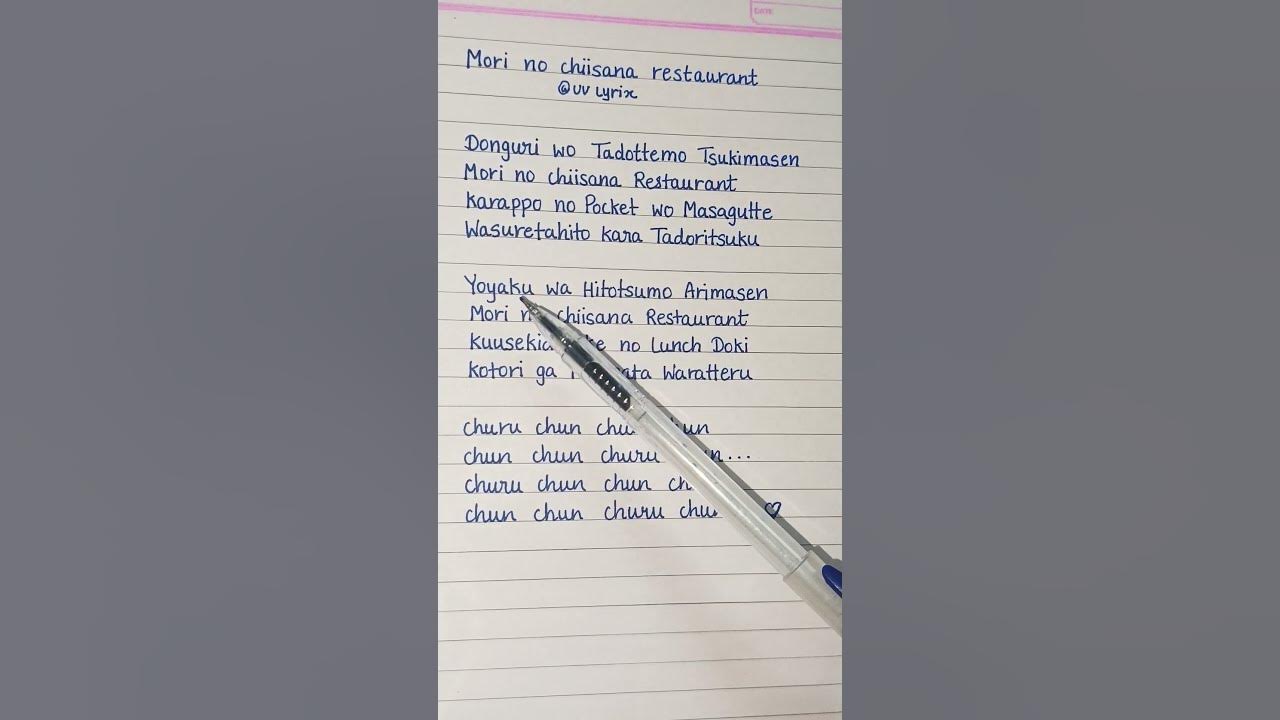 DATE:
Mori no chiisana restaurant
@UV Lyrix
Donguri wo Tadottemo Tsukimasen
Mori no chiisana Restaurant
Karappo no Pocket wo Masagutte
Wasuretahito kara Tadoritsuku
Yoyaku wa Hitotsumo Arimasen
Mori chiisana Restaurant
no Lunch Doki
Kotori ga Waratteru
churu chun
chun chun churu
churu chun chun
chun chun churu